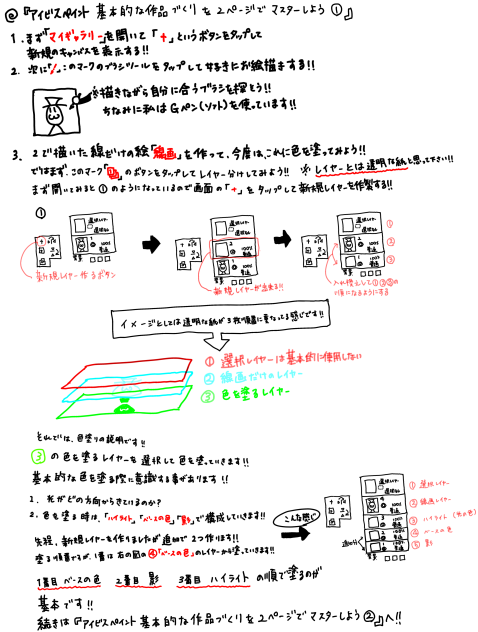 @『アイビスペイント 基本的な作品づくりを2ページでマスターしよう①』
1. まず「マイギャラリー」を開いて「+」というボタンをタップして
新規のキャンバスを表示する!!
2. 次に「/」このマークのブラシツールをタップして好きにお絵描きする!!
※描きながら自分に合うブラシを探そう!!
ちなみに私はGペン(ソフト)を使っています!!
3. 2で描いた線だけの絵「線画」を作って、今度は、これに色を塗ってみよう!!
ではまず、このマーク「」のボタンをタップしてレイヤー分けしてみよう!! ※レイヤーとは透明な紙と思って下さい!!
まず開いてみると①のようになっているので画面の「+」をタップして新規レイヤーを作製する!!
①
選択レイヤー
選択解除
1
100%
普通
背景
新規レイヤー作るボタン
選択レイヤー
2
100%
普通
1
100%
普通
背景
新規レイヤーが出来る!!
選択レイヤー
2
100%
普通
1
100%
普通
背景
①
②
③
入れ換えして①②③の
順になるようにする
イメージとしては透明な紙が3枚順番に重なってる感じです!!
① 選択レイヤーは基本的に使用しない
② 線画だけのレイヤー
③ 色を塗るレイヤー
それでは、色塗りの説明です!!
③の色を塗るレイヤーを選択して色を塗っていきます!!
基本的な色を塗る際に意識する事があります!!
1. 光がどの方向からきているのか?
2. 色を塗る時は、「ハイライト」「ベースの色」「影」で構成していきます!!
先程、新規レイヤーを作りましたが追加で2つ作ります!!
塗る順番ですが、1番は右の図の④「ベースの色」のレイヤーから塗っていきます!!
1番目 ベースの色 2番目 影 3番目 ハイライト の順で塗るのが
基本です!!
こんな感じ
追加分
背景
① 選択レイヤー
② 線画レイヤー
③ ハイライト (光の色)
④ ベースの色
⑤ 影
続きは『アイビスペイント 基本的な作品づくりを2ページでマスターしよう②』へ!!